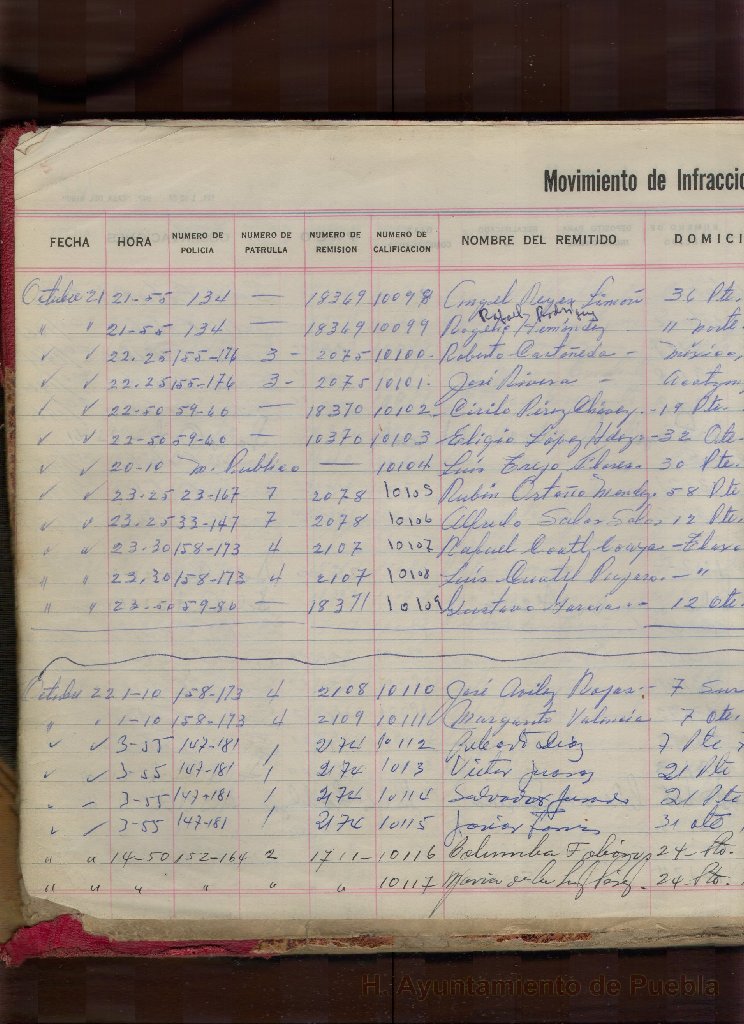 Movimiento de Infraccio
FECHA HORA NUMERO DE POLICIA NUMERO DE PATRULLA NUMERO DE REMISION NUMERO DE CALIFICACION NOMBRE DEL REMITIDO DOMICI
Octubre 21 21-55 134 — 18369 10098 Reyes Limón 36 Pte.
Rafael Rodriguez
" " 21-55 134 — 18369 10099 Rogelio Hernández 11 norte
" " 22.25 155-176 3- 2075 10100. Roberto Castañeda - México,
" " 22.25 155-176 3- 2075 10101. José Rivera -
" " 22-50 59-60 — 18370 10102. Cirilo Pérez Chávez.- 19 Pte.
" " 22-50 59-60 — 10370 10103 Eligio López Hdez- 32 Ote-
" " 20-10 M. Publico — 10104 Luis Trejo Flores. 30 Pte.
" " 23.25 23-167 7 2078 10105 Rubín Mendez 58 Pte
" " 23.25 33-147 7 2078 10106 Alfredo 12 Pte.
" " 23.30 158-173 4 2107 10107
" " 23.30 158-173 4 2107 10108 Luis - "
" " 23-50 59-80 — 18371 10109 Gustavo García.- 12 ote.
Octubre 22 1-10 158-173 4 2108 10110 José Aviles Rojas.- 7 Sur
" " 1-10 158-173 4 2109 10111 Margarito Valencia 7 ote.
" " 3-55 147-181 1 2174 10112 Diaz 7 Pte
" " 3-55 147-181 1 2174 1013 Victor Juarez 21 Pte
" " 3-55 147-181 1 2174 10114 Salvador 21 Pte.
" " 3-55 147-181 1 2174 10115 31 ote
" " 14-50 152-164 2 1711- 10116 Columba 24- Pte.
" " " " " 10117 Maria de la Luz 24. Pte.
H. Ayuntamiento de Puebla